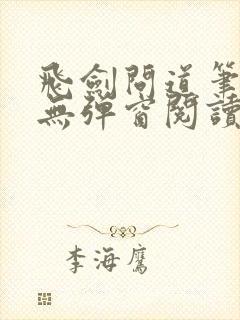 飛劍問道筆
無彈窗閱讀
李海鷹